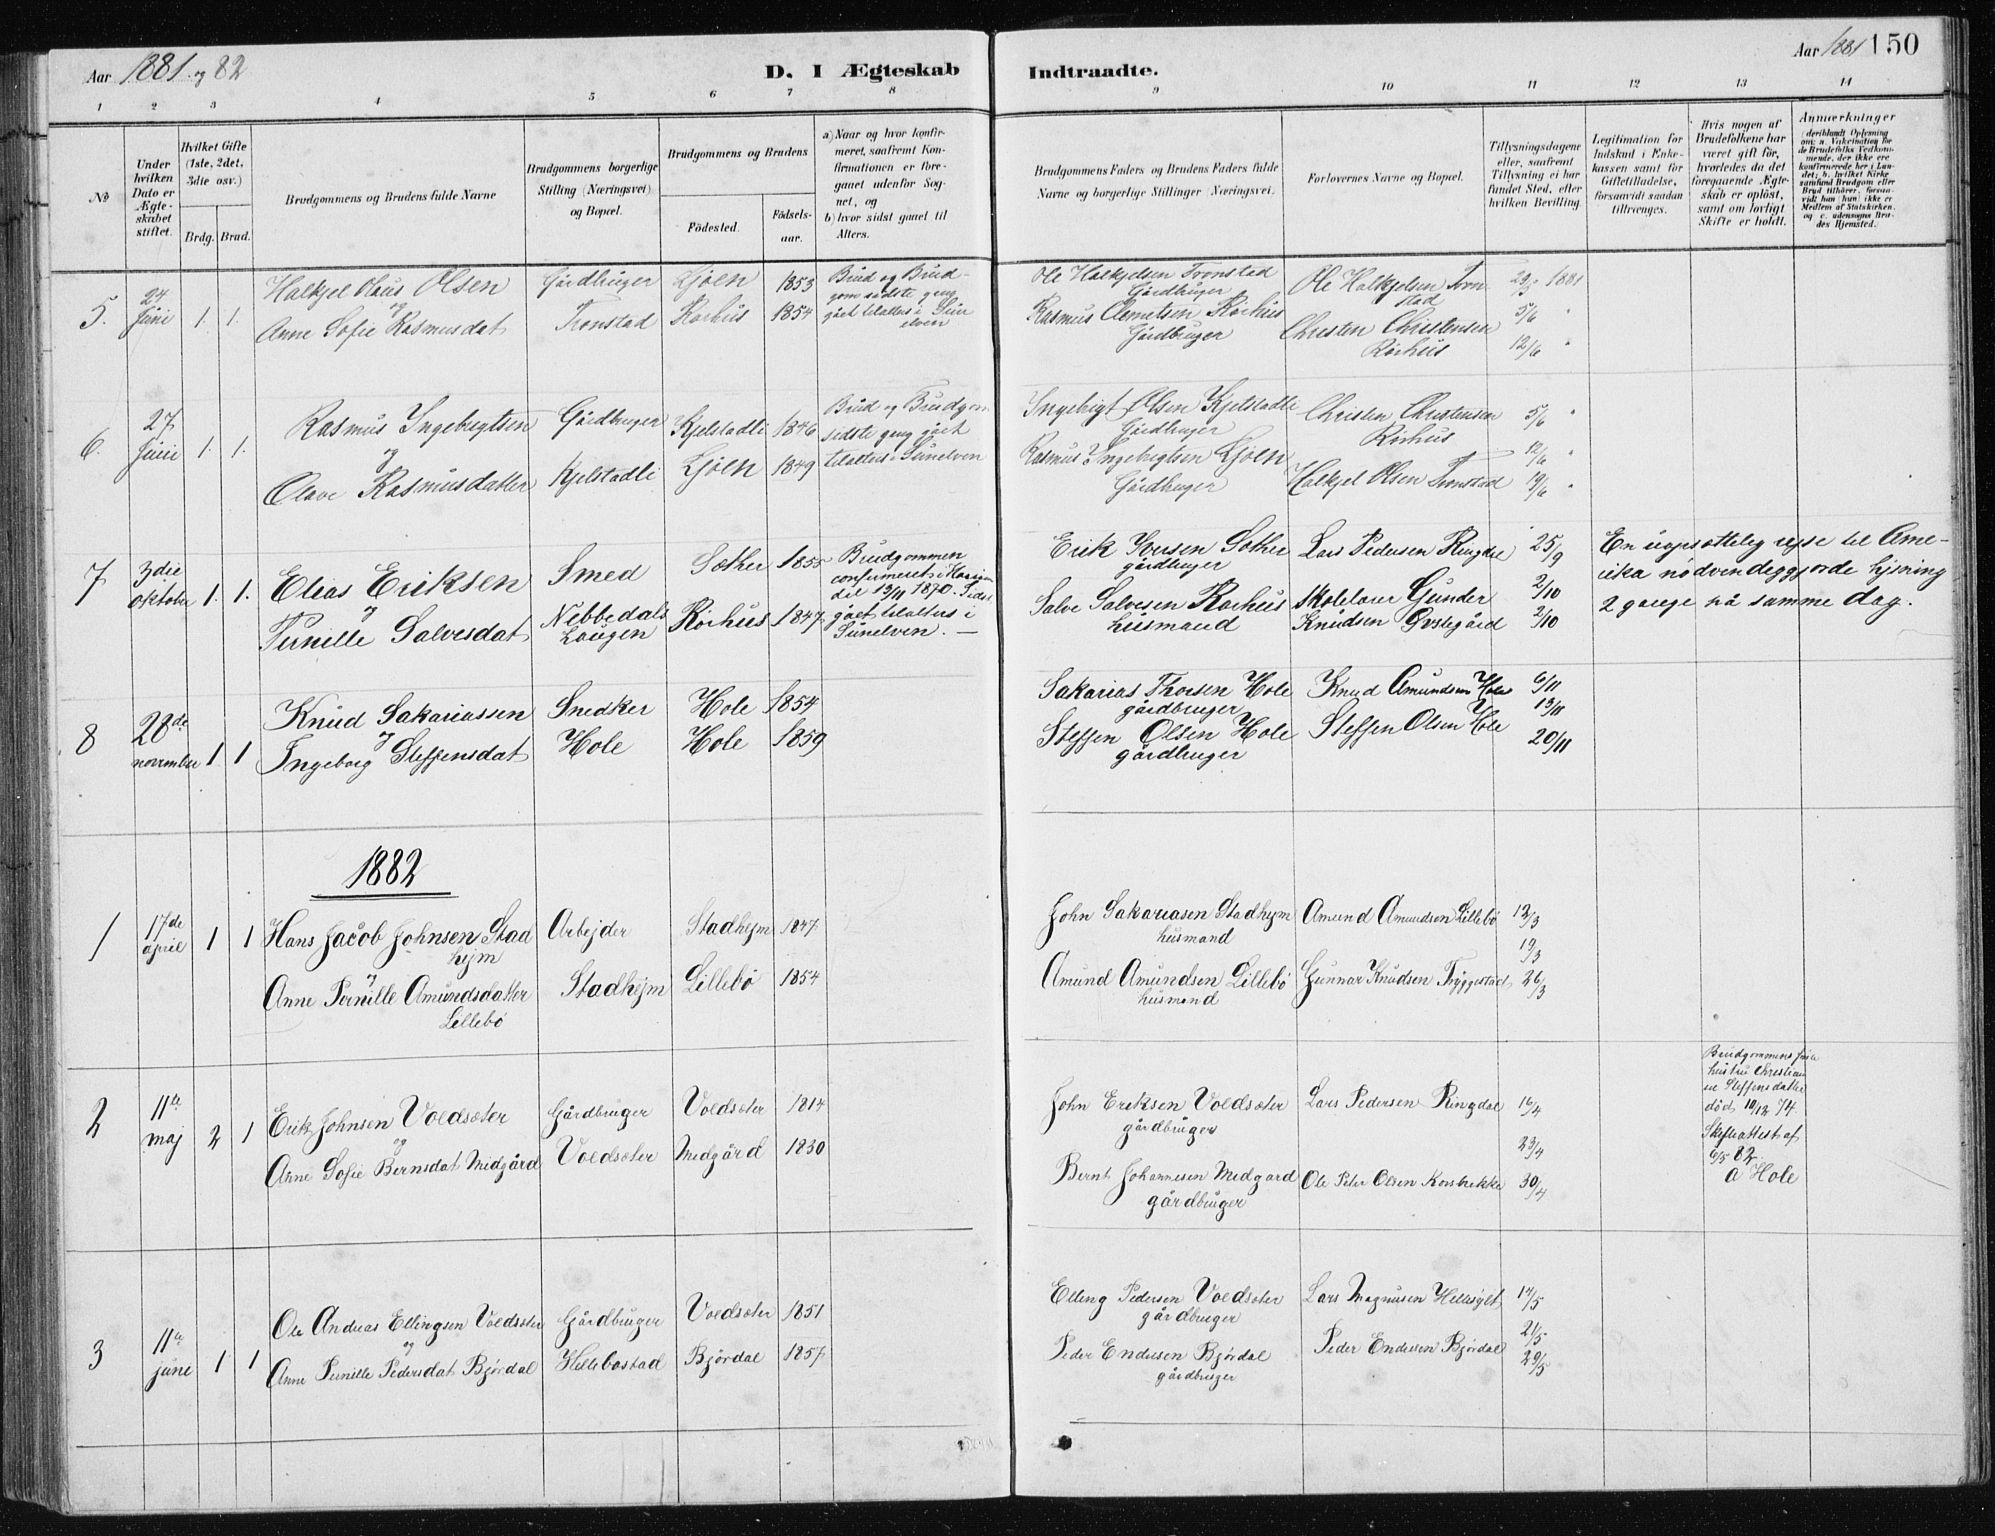 Aar 1881 og 82
D. I Ægteskab
Indtraadte.
Aar 1881 150
1 2 3 4 5 6 7 8 9 10 11 12 13 14
No
Under hvilken Dato er Ægteskabet stiftet.
Hvilket Gifte (1ste, 2det, 3die osv.)
Brdg. Brud.
Brudgommens og Brudens fulde Navne
Brudgommens borgerlige Stilling (Næringsvei) og Bopæl.
Brudgommens og Brudens
Födested.
Födselsaar.
a) Naar og hvor konfirmeret, saafremt Konfirmationen er foregaaet udenfor Sognet, og
b) hvor sidst gaaet til Alters.
Brudgommens Faders og Brudens Faders fulde Navne og borgerlige Stillinger (Næringsvei.
Forlovernes Navne og Bopæl.
Tillysningsdagene eller, saafremt Tillysning ei har fundet Sted, efter hvilken Bevilling.
Legitimation for Indskud i Enkekassen samt for Giftetilladelse, forsaavidt saadan tiltrænges.
Hvis nogen af Brudefolkene har været gift för, hvorledes da det foregaaende Ægteskab er oplöst, samt om lovligt Skifte er holdt.
Anmærkninger
(deriblandt Oplysning om: a. Vakcination for de Brudefolks Vedkommende, der ikke ere konfirmerede her i Landet; b. hvilket Kirkesamfund Brudgom eller Brud tilhörer, forsaavidt han (hun) ikke er Medlem af Statskirken, og c. udensogns Brudes Hjemsted.)
5. 24 Juni 1. 1. Halkjel Olaus Olsen
og
Anne Sofie Rasmusdat
Gårdbruger Tronstad
Ljöen 1853
Rörhus 1854
Brud og Brudgom sidste gang gået tilalters i Sunelven
Ole Halkjelsen Tronstad
Gårdbruger
Rasmus Clemetsen Rörhus
Gårdbruger
Ole Halkjelsen Tronstad
Christen Christensen Rörhus
29/5 1881
5/6 "
12/6 "
6. 27 Juni 1. 1. Rasmus Ingebrigtsen
og
Olave Rasmusdatter
Gårdbruger Kjelstadli
Kjelstadli 1846
Ljöen 1849
Brud og Brudgom sidste gang gået tilalters i Sunelven
Ingebrigt Olsen Kjelstadli
Gårdbruger
Rasmus Ingebrigtsen Ljöen
Gårdbruger
Christen Christensen Rörhus
Halkjel Olsen Tronstad
5/6 "
12/6 "
19/6 "
7 3die Oktober 1. 1. Elias Eriksen
og
Pernille Salvesdat
Smed
Nebbedals Laugen
Sæther 1855
Rörhus 1847
Brudgommen confirmeret i 13/11 1870. Sidst gået tilalters i Sunelven.
Erik Iversen Sæther
gårdbruger
Salve Salvesen Rörhus
husmand
Lars Pedersen Ringdal
Skolelærer Gunder Knudsen
25/9
2/10
2/10
En uopsættelig rejse til Amerika nödvendiggjorde lysning 2 gange på samme dag.
8 28de november 1. 1 Knud Sakariassen
og
Ingeborg Steffensdat
Snedker
Hole
Hole 1854
Hole 1859
Sakarias Thorsen Hole
gårdbruger
Steffen Olsen Hole
gårdbruger
Knud Amundsen Hole
Steffen Olsen Hole
6/11
13/11
20/11
1882
1 17de april 1 1 Hans Jacob Johnsen Stadhejm
og
Anne Pernille Amundsdatter Lillebö
Arbejder
Stadhejm
Stadhejm 1847
Lillebö 1854
John Sakariasen Stadhejm
husmand
Amund Amundsen Lillebö
husmand
Amund Amundsen Lillebö
Gunnar Knudsen Tryggestad
12/3
19/3
26/3
2 11te maj 2 1 Erik Johnsen Voldsæter
og
Anne Sofie Berntsdat Midgård
Gårdbruger
Voldsæter
Voldsæter 1814
Midgård 1830
John Eriksen Voldsæter
gårdbruger
Bernt Johannesen Midgard
gårdbruger
Lars Pedersen Ringdal
Ole Peter Olsen Korsbrekke
16/4
23/4
30/4
Brudgommens hustru Christiane Steffensdatter död 10/12 74.
Skifteattest af 6/5 82
a Hole
3 11te june 1 1 Ole Andreas Ellingsen Voldsæter
og
Anne Pernille Pedersdat Bjørdal
Gårdbruger
Hellebostad
Voldsæter 1851
Bjørdal 1857
Elling Pedersen Voldsæter
gårdbruger
Peder Endresen Bjørdal
gårdbruger
Lars Magnusen Hellesylt
Peder Endresen Bjørdal
14/5
21/5
29/5